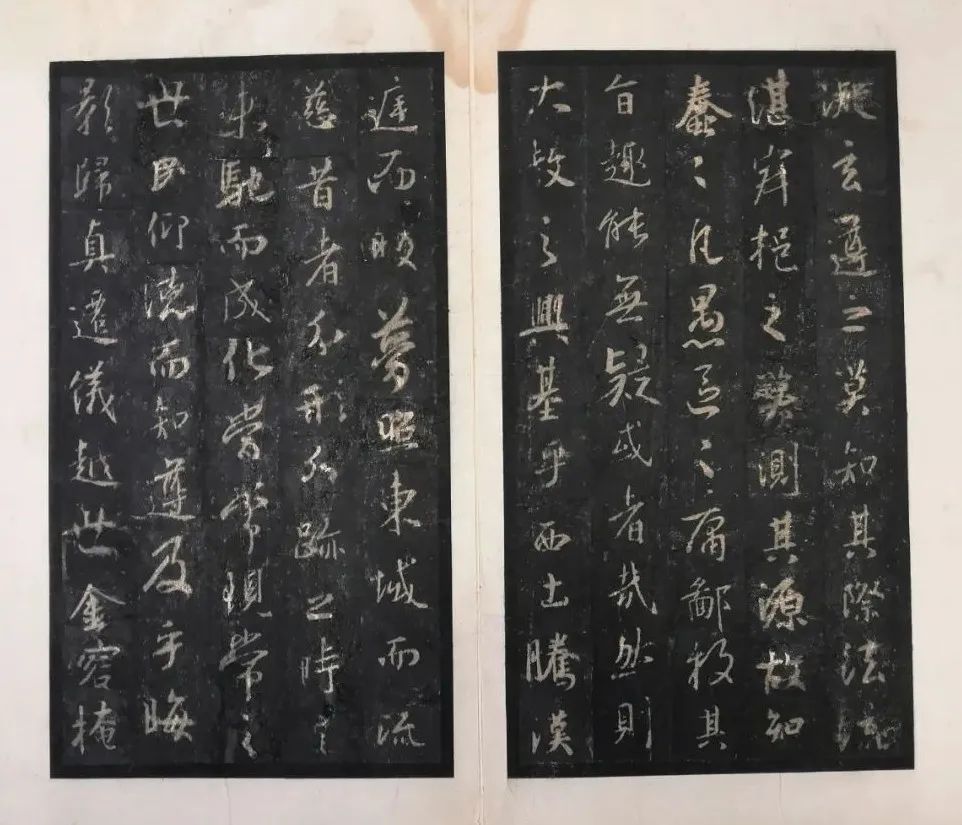 凝玄遵之莫知其際法流
湛寂挹之莫測其源故知
蠢〻凡愚區〻庸鄙投其
旨趣能無疑或者哉然則
大教之興基乎西土騰漢
庭而皎夢照東域而流
慈昔者分形分跡之時言
未馳而成化當常現常之
世民仰德而知遵及乎晦
影歸真遷儀越世金容掩